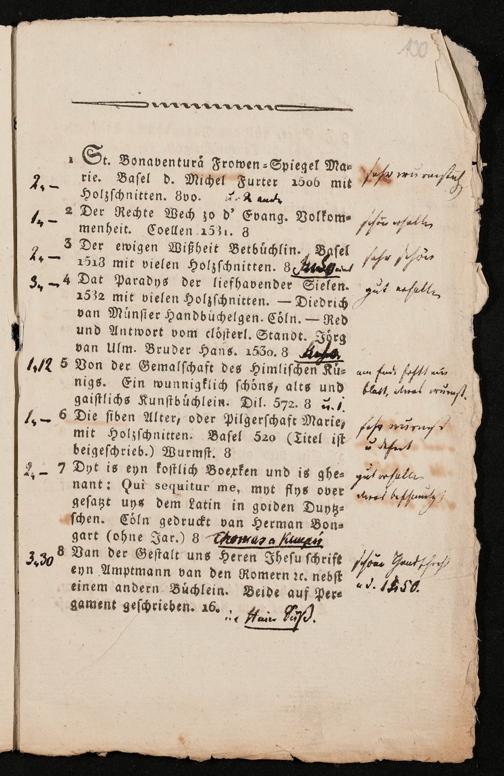 100
1 St. Bonaventurä Frowen-Spiegel Ma-
rie. Basel d. Michel Furter 1506 mit
Holzschnitten. 8vo.
2,— sehr wurmstich
2 Der Rechte Wech zo d' Evang. Volkom-
menheit. Coellen 1531. 8
1,— schön erhalten
3 Der ewigen Wißheit Betbüchlin. Basel
1518 mit vielen Holzschnitten. 8
2,— sehr schön
4 Dat Paradys der liefhavender Sielen.
1532 mit vielen Holzschnitten. — Diedrich
van Münster Handbüchelgen. Cöln. — Red
und Antwort vom clösterl. Standt. Jörg
van Ulm. Bruder Hans. 1530. 8
3,— gut erhalten
5 Von der Gemalschaft des Himlischen Kü-
nigs. Ein wunnigklich schöns, alts und
gaistlichs Kunstbüchlein. Dil. 572. 8
1,12 am Ende fehlt ein
blatt, etwas wurmst.
6 Die siben Alter, oder Pilgerschaft Marie,
mit Holzschnitten. Basel 520 (Titel ist
beigeschrieb.) Wurmst. 8
1,— sehr wurmst
u defect
7 Dyt is eyn kostlich Boexken und is ghe-
nant: Qui sequitur me, myt flys over
gesatzt uys dem Latin in goiden Duytz-
schen. Cöln gedruckt van Herman Bon-
gart (ohne Jar.) 8 Thomas a Kempis
2,— gut erhalten
etwas beschmutzt
8 Van der Gestalt uns Heren Jhesu schrift
eyn Amptmann van den Romern ꝛc. nebst
einem andern Büchlein. Beide auf Per-
gament geschrieben. 16.
3,30 schöne Handschrift
v. J. 1550.